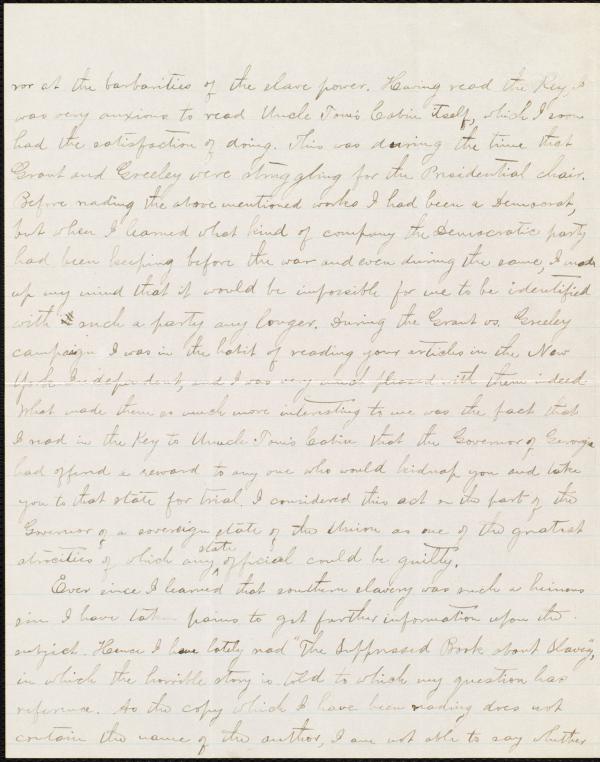 ror at the barbarities of the slave power. Having read the Key, I
was very anxious to read Uncle Tom's Cabin itself, which I soon
had the satisfaction of doing. This was during the time that
Grant and Greeley were struggling for the Presidential chair.
Before reading the above mentioned works I had been a Democrat,
but when I learned what kind of company the Democratic party
had been keeping before the war and even during the same, I made
up my mind that it would be impossible for me to be identified
with such a party any longer. During the Grant vs. Greeley
campaign I was in the habit of reading your articles in the New
York Independent, and I was very much pleased with them indeed.
What made them so much more interesting to me was the fact that
I read in the Key to Uncle Tom's Cabin that the Governor of Georgia
had offered a reward to any one who would kidnap you and take
you to that state for trial. I considered this act on the part of the
Governor of a sovereign state of the Union as one of the greatest
atrocities of which any state official could be guilty.
Ever since I learned that southern slavery was such a heinous
sin I have taken pains to get further information upon the
subject. Hence I have lately read "The Suppressed Book about Slavery",
in which the horrible story is told to which my question has
reference. As the copy which I have been reading does not
contain the name of the author, I am not able to say whether